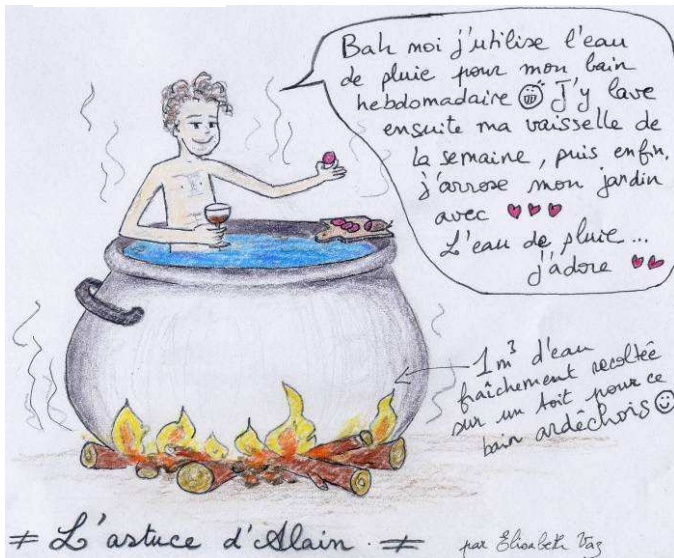 Bah moi j'utilise l'eau
de pluie pour mon bain
hebdomadaire J'y lave
ensuite ma vaisselle de
la semaine, puis enfin,
j'arrose mon jardin
avec ♥♥♥
L'eau de pluie...
j'adore ♥♥
1m³ d'eau
fraîchement recoltée
sur un toit pour ce
bain ardêchois ☺
≠ L'astuce d'Alain. ≠
par Elisabeth Vaz